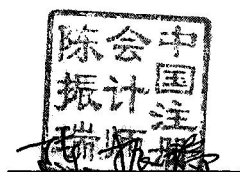 中国注册
会计师
陈振瑞